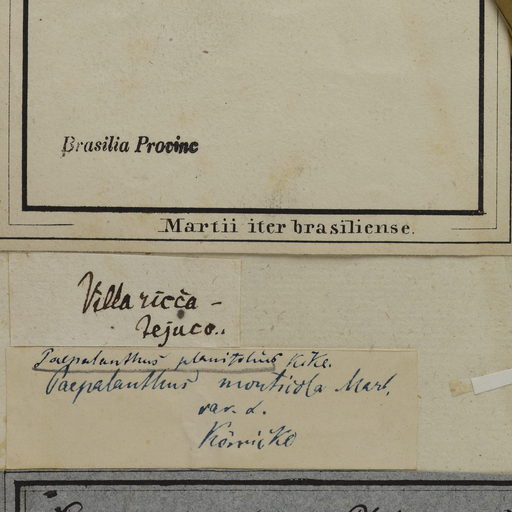 Brasilia Provinc
Martii iter brasiliense.
Villa ricca -
Tejuco..
Paepalanthus planifolius Kke.
Paepalanthus Mart.
var. α.
Körnicke